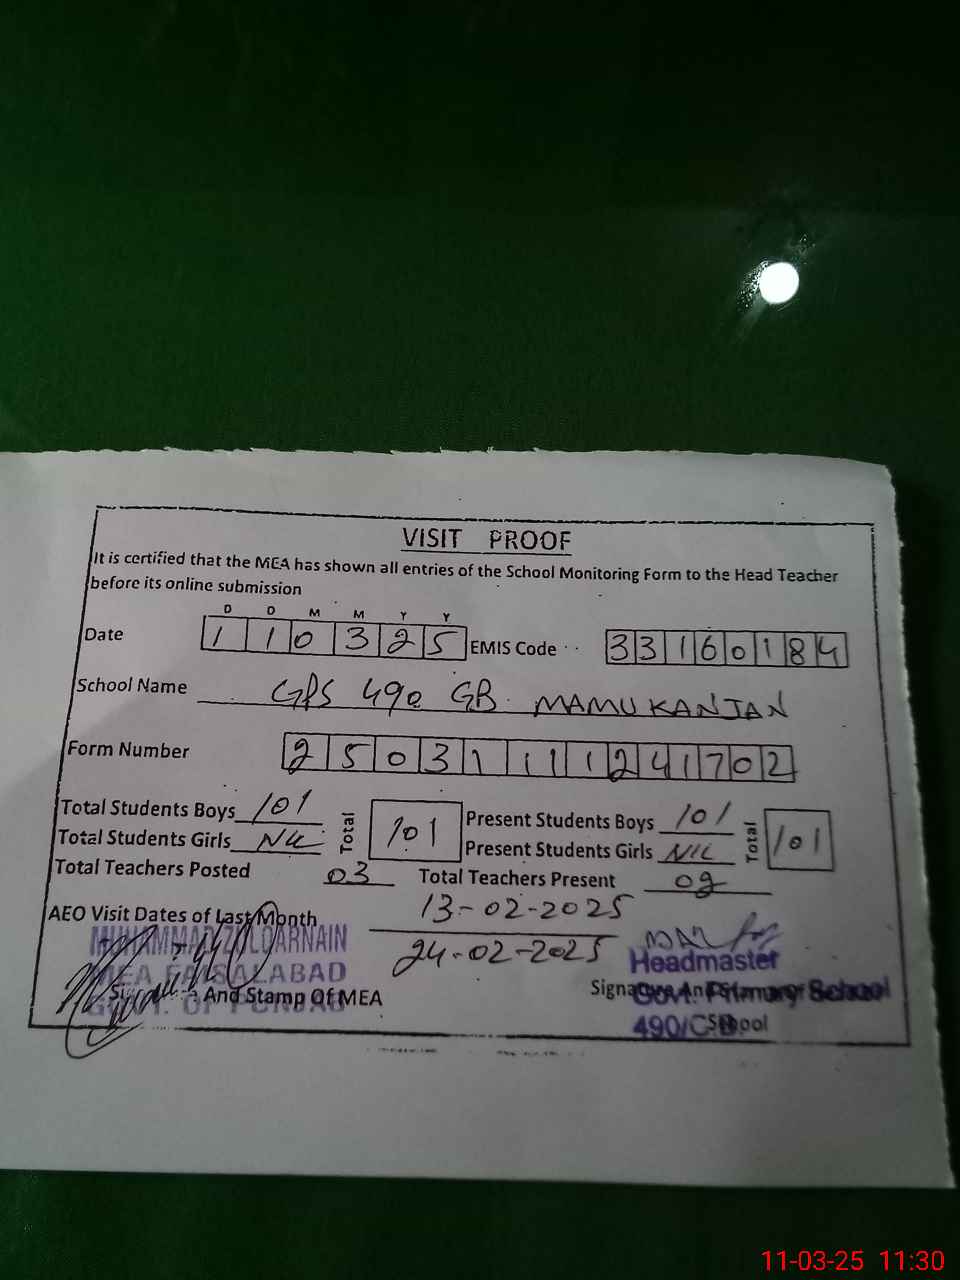 VISIT PROOF
It is certified that the MEA has shown all entries of the School Monitoring Form to the Head Teacher
before its online submission
D D M M Y Y
Date 1 1 0 3 2 5 EMIS Code 3 3 1 6 0 1 8 4
School Name GPS 490 GB MAMUKANJAN
Form Number 2 5 0 3 1 1 1 1 2 4 1 7 0 2
Total Students Boys 101 Total 101 Present Students Boys 101 Total 101
Total Students Girls NIL Present Students Girls NIL
Total Teachers Posted 03 Total Teachers Present
AEO Visit Dates of Last Month 13-02-2025
24-02-2025
MUHAMMAD ZULQARNAIN
MEA FAISALABAD
GOVT. OF PUNJAB
And Stamp Of MEA
Headmaster
Govt. Primary School
490/G.B.
School
11-03-25 11:30